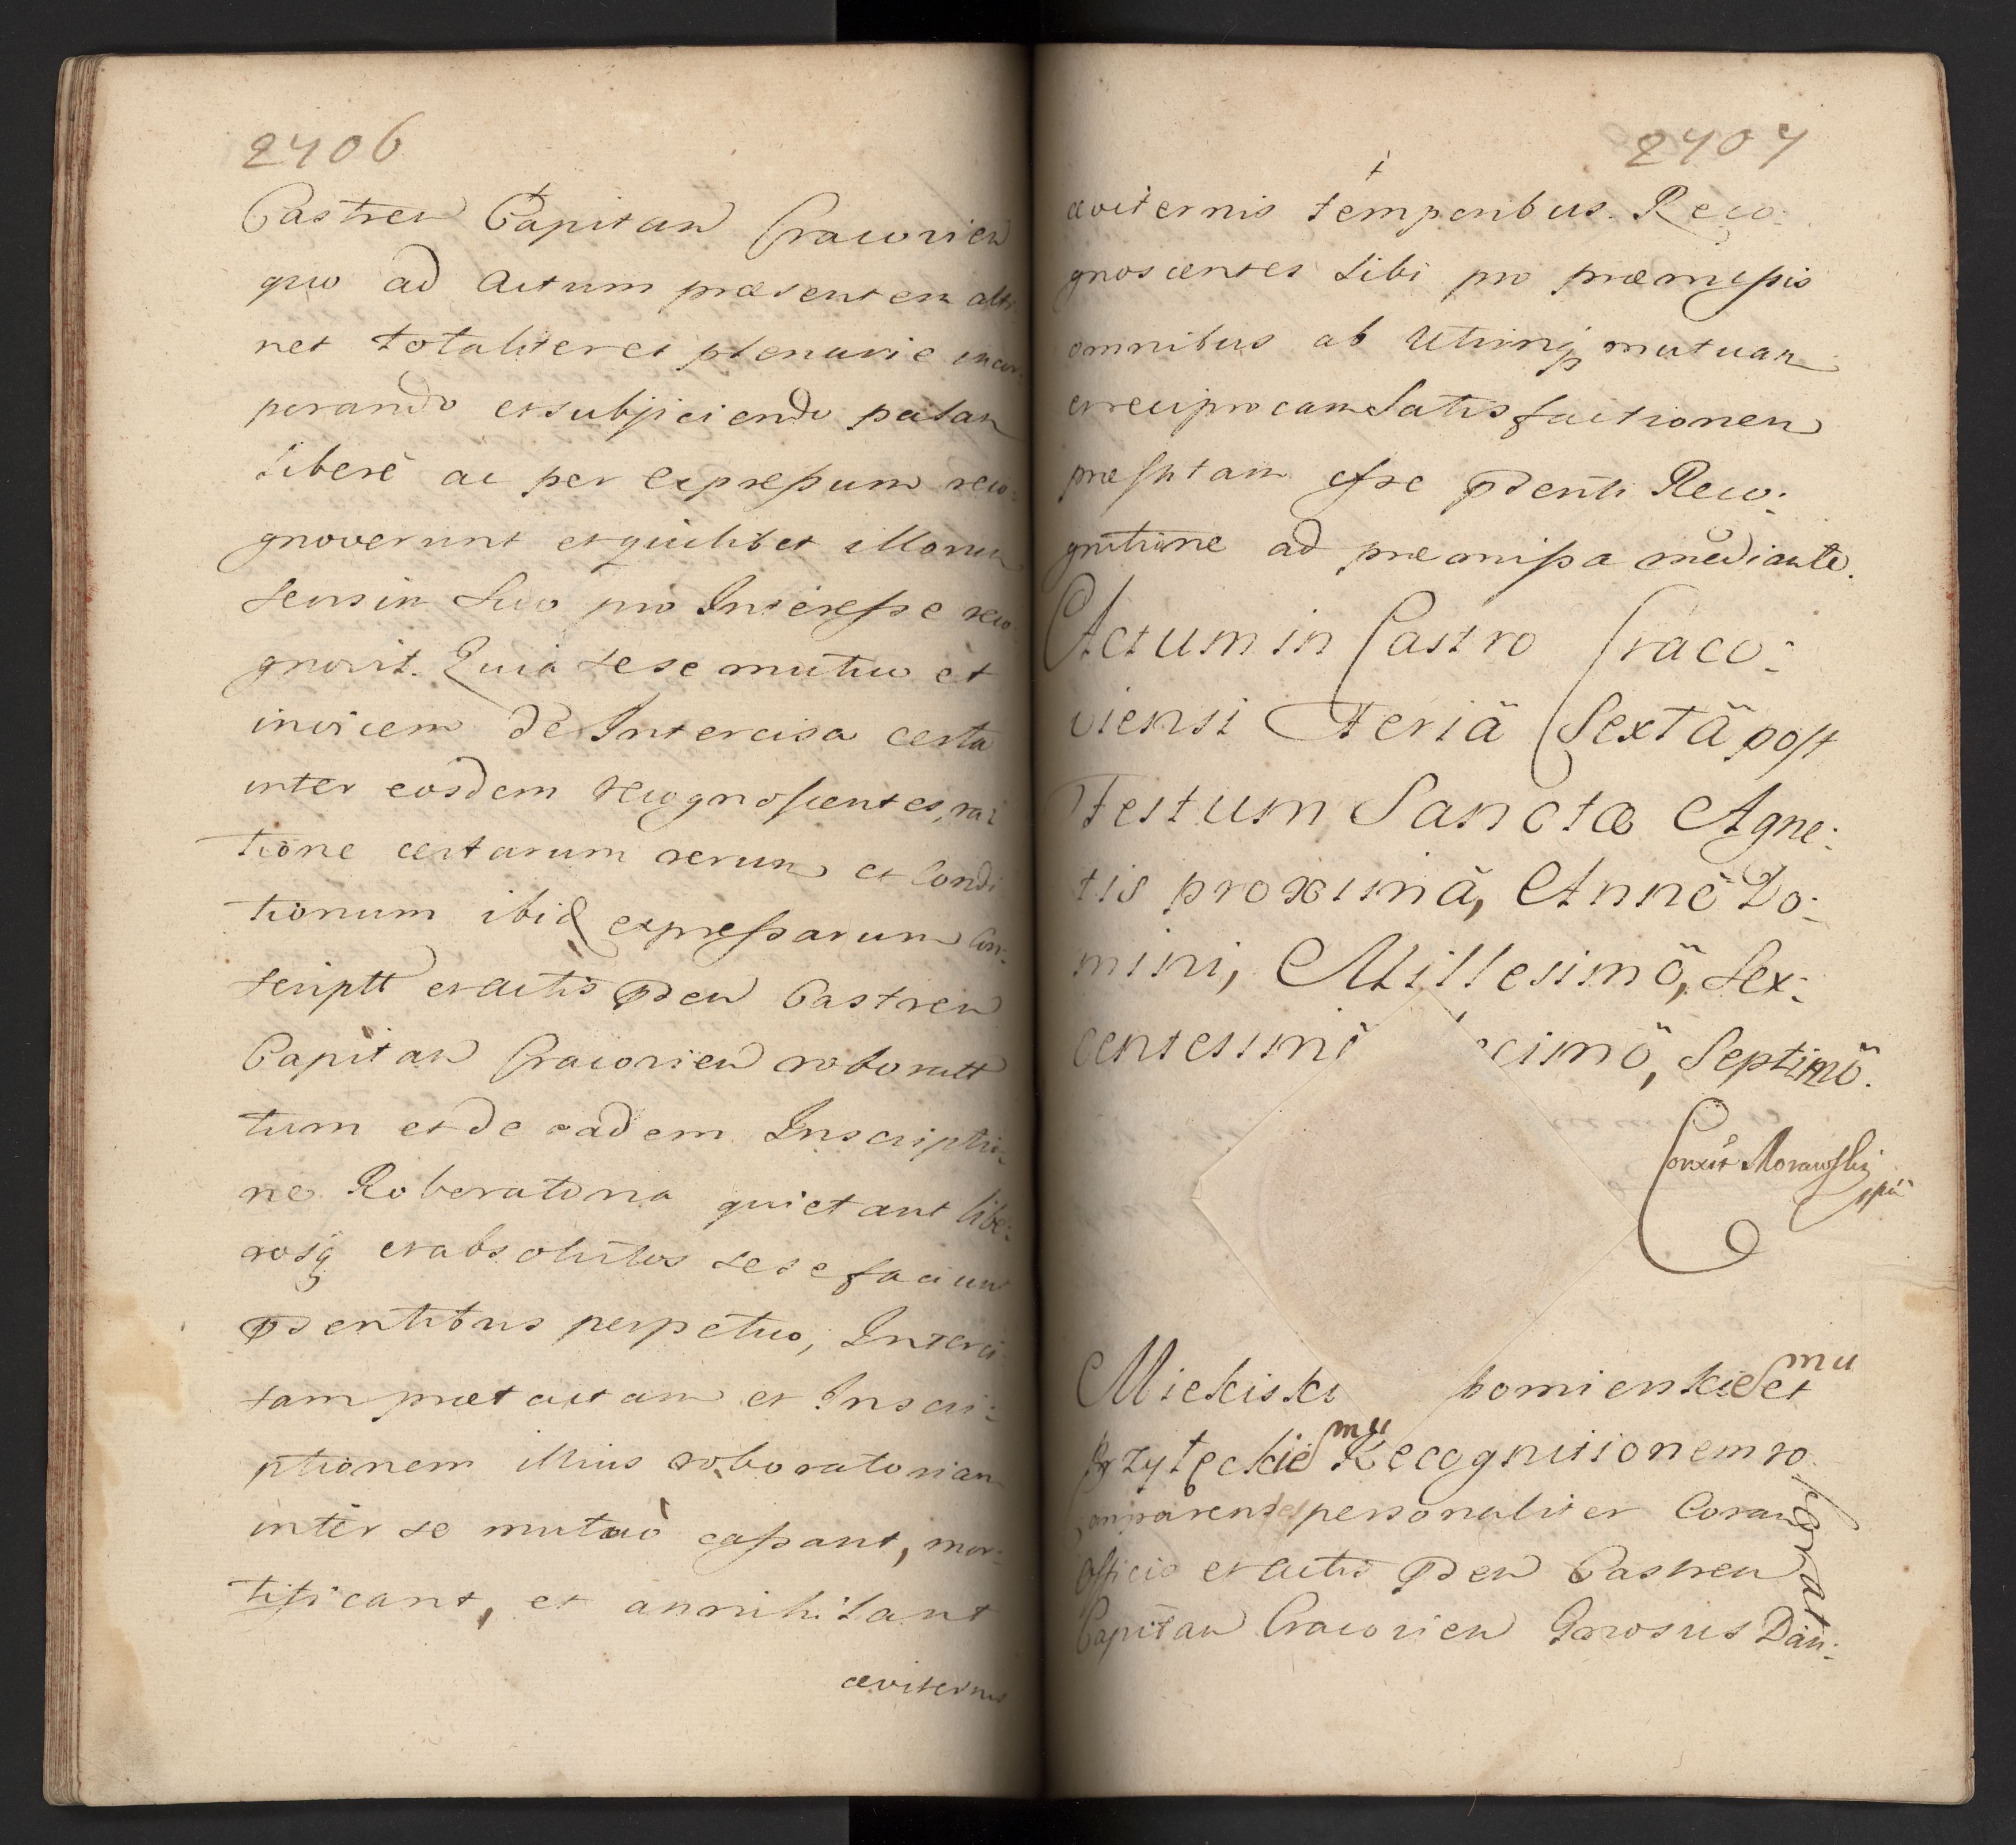 2406
Castren Capitan Cracovien
quo ad Actum præsentem atti-
net totaliter et plenarie incor-
porando et subjiciendo palam
liberè ac per expressum reco-
gnoverunt et quilibet illorum
seusin Suo pro Interesse reco
gnovit. Quia sese mutuo et
invicem de Intercisa certa
inter eosdem recognoscentes, ra-
tione certarum rerum et Condi
tionum ibid expressarum Con-
scriptt et actis psen Castren
Capitan Cracovien roboratt
tum et de eadem Inscriptio-
ne Roboratoria quietant libe-
rosq et absolutos sese faciunt
psentibus perpetuo, Interci-
sam prætactam et Inscri-
ptionem illius roboratoriam
inter se mutuò cassant, mor-
tificant, et annihilant
æviternis
2407
æviternis temporibus. Reco-
gnoscentes Sibi pro præmissis
omnibus ab Utrinq mutuam
et reciprocam Satisfactionem
præstitam esse psenti Reco-
gnitione ad præmissa mediante.
Actum in Castro Craco-
viensi Feriâ Sextâ post
Festum Sanctæ Agne-
tis proximâ, Annô Do-
mini, Millesimô, Sex-
centesimô cimô, Septimô.
Corexit Morawski
mpa
Miekiski homienskie mu et
Przyłęckie mu Recognitionem ro-
borat
Comparentes personaliter Coram
Officio et actis psen Castren
Capitan Cracovien Gnrosus Dan-